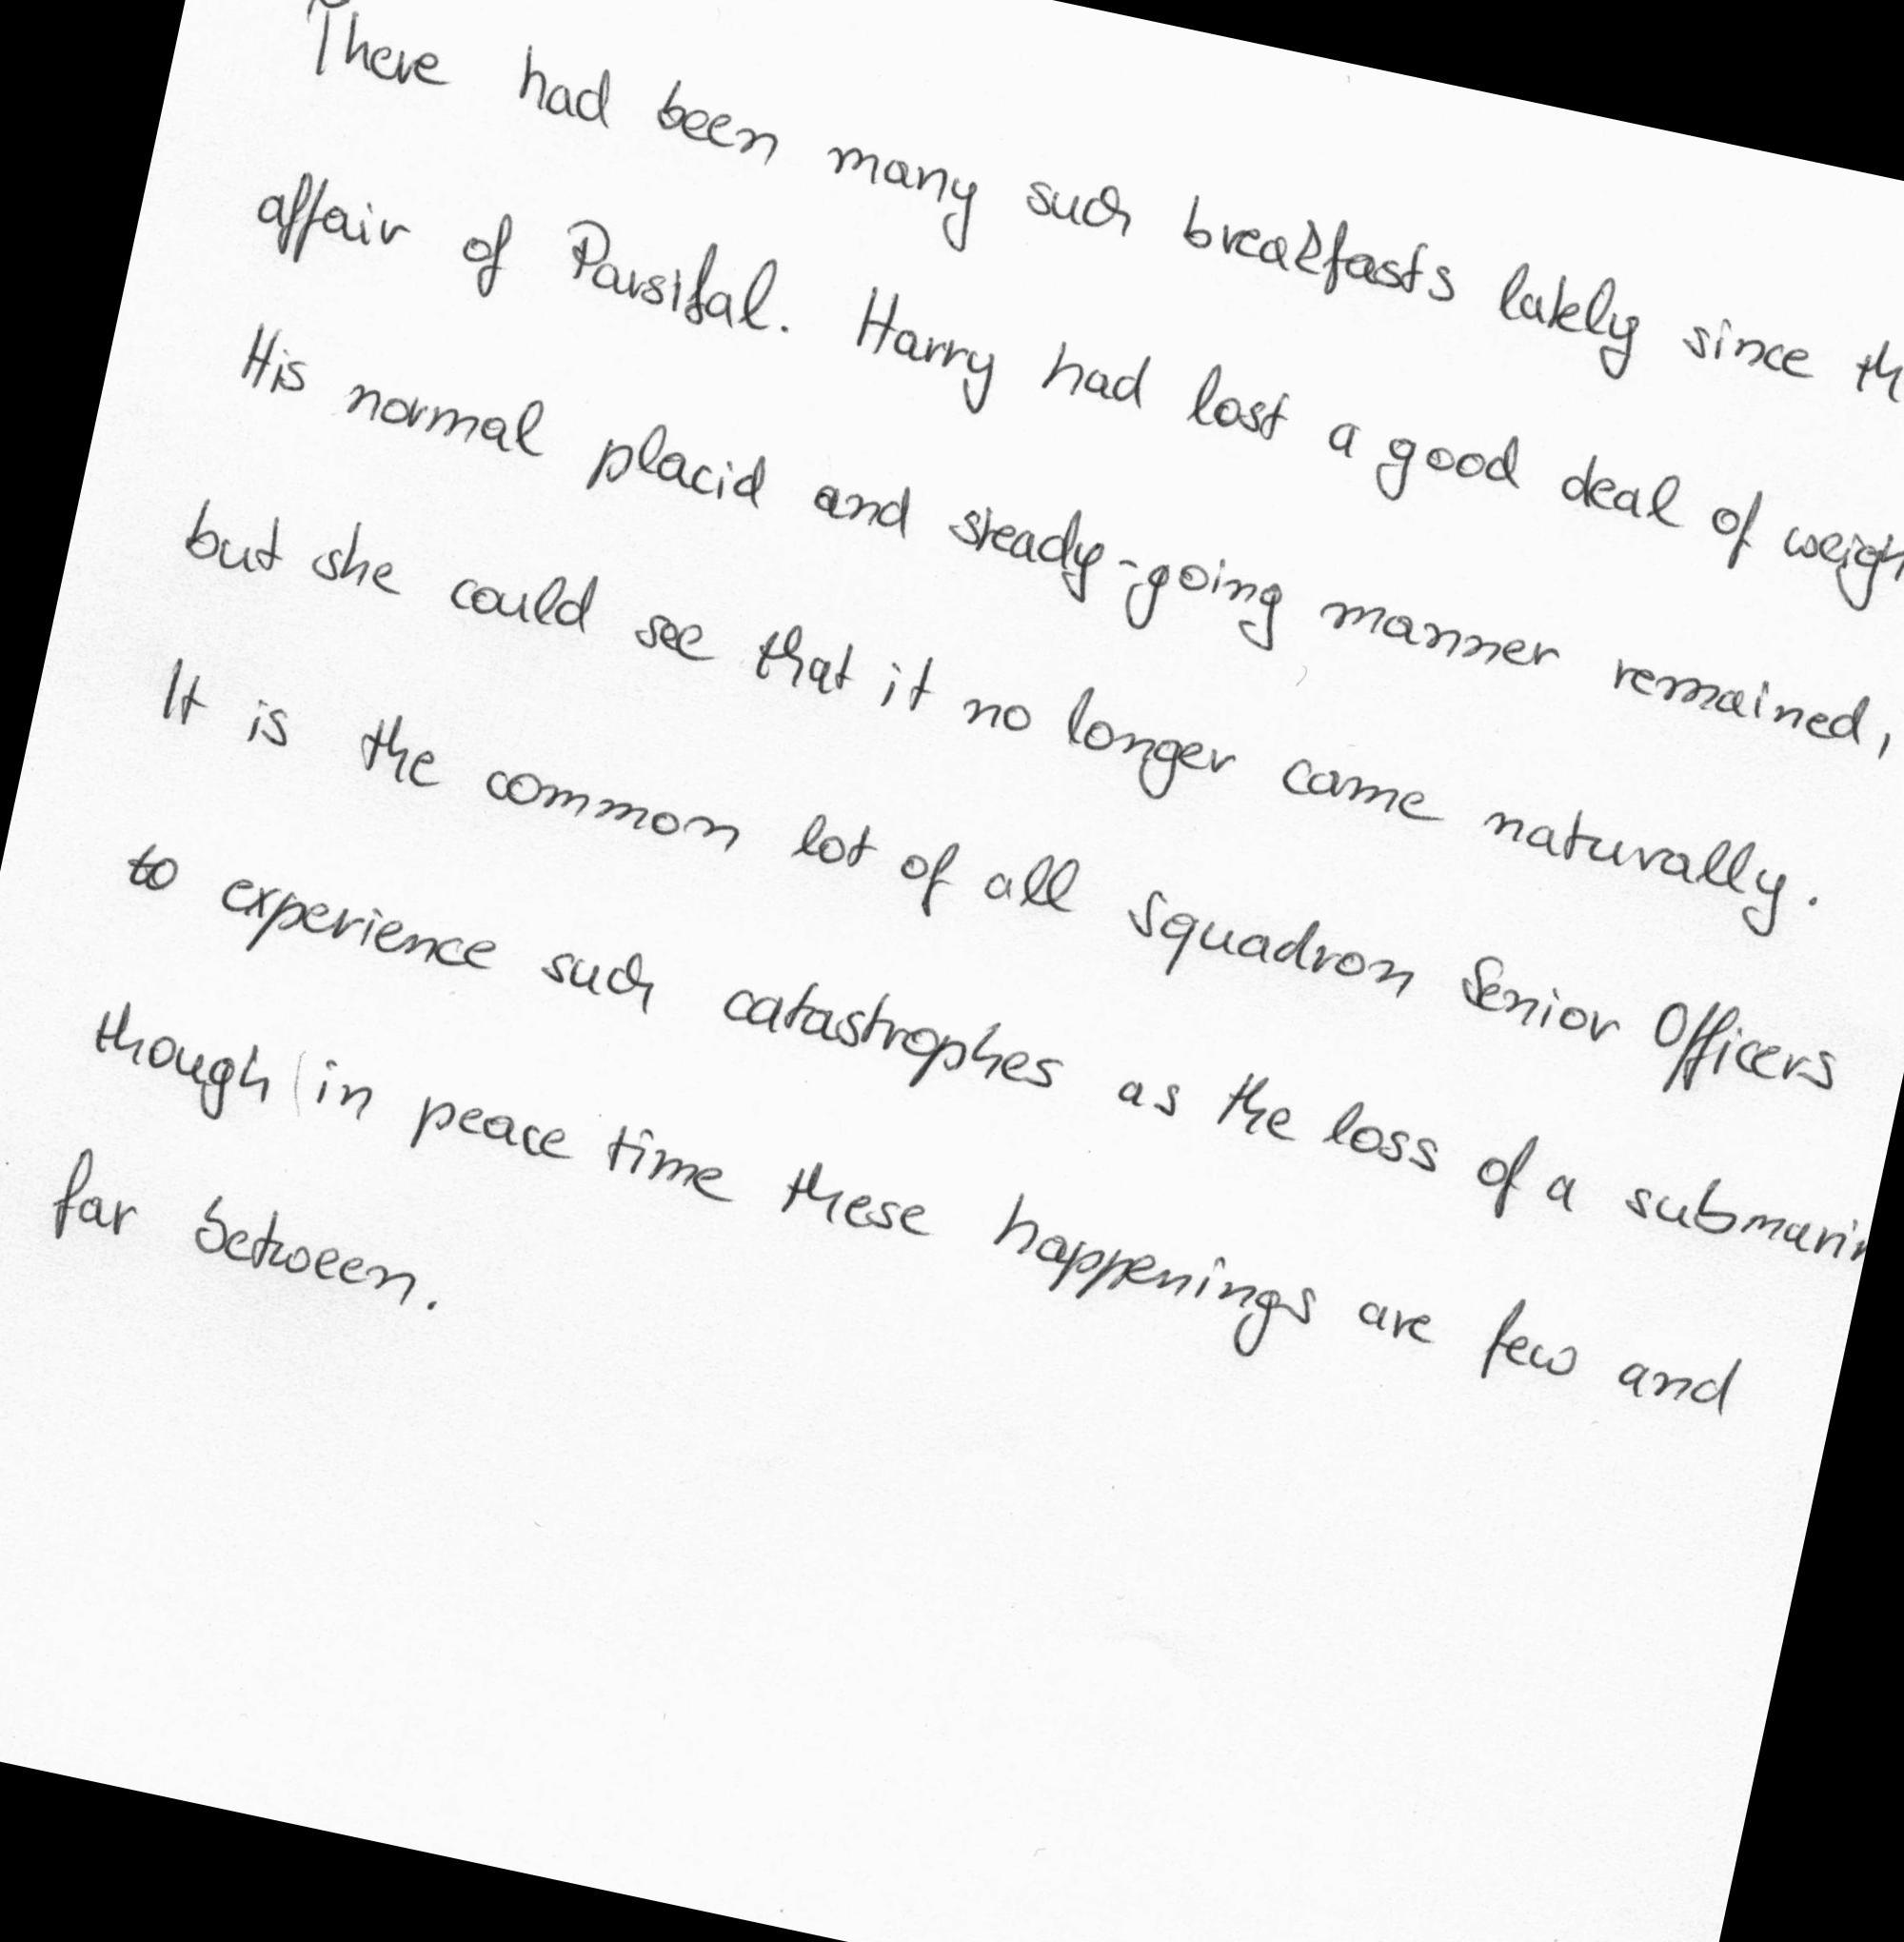 There had been many such breakfasts lately since th
affair of Parsifal. Harry had lost a good deal of weigh
His normal placid and steady-going manner remained,
but she could see that it no longer came naturally.
It is the common lot of all Squadron Senior Officers
to experience such catastrophes as the loss of a submarin
though in peace time these happenings are few and
far between.